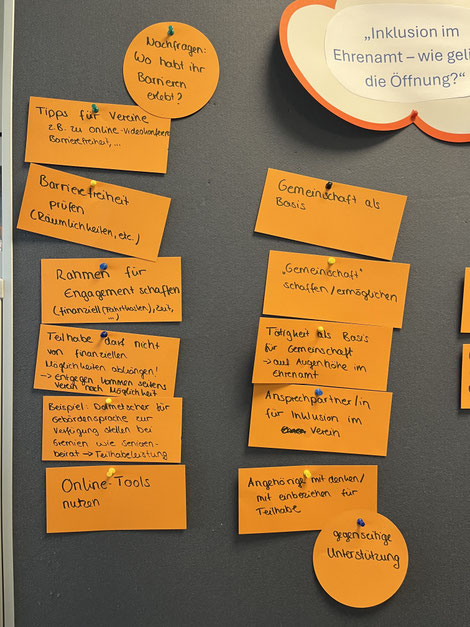 „Inklusion im
Ehrenamt – wie geli
die Öffnung?“
Nachfragen:
Wo habt ihr
Barrieren
erlebt?
Tipps für Vereine
z.B. zu online-Videokonferen
Barrierefreiheit, ...
Barrierefreiheit
prüfen
(Räumlichkeiten, etc.)
Rahmen für
Engagement schaffen
(finanziell (Fahrtkosten), Zeit,
...)
Teilhabe darf nicht
von finanziellen
Möglichkeiten abhängen!
→ entgegen kommen seitens
Verein nach Möglichkeit
Beispiel: Dolmetscher für
Gebärdensprache zur
Verfügung stellen bei
Gremien wie Senioren-
beirat → Teilhabeleistung
Online-Tools
nutzen
Gemeinschaft als
Basis
„Gemeinschaft“
schaffen/ermöglichen
Tätigkeit als Basis
für Gemeinschaft
→ auf Augenhöhe im
Ehrenamt
Ansprechpartner/in
für Inklusion im
Verein
Angehörige mit denken/
mit einbeziehen für
Teilhabe
gegenseitige
Unterstützung